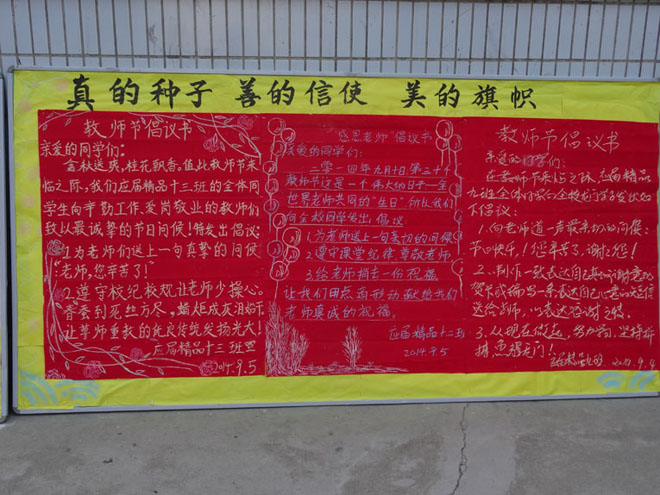 真的种子 善的信使 美的旗帜
教师节倡议书
亲爱的同学们：
金秋送爽，桂花飘香。值此教师节来
临之际，我们应届精品十三班的全体同
学生向辛勤工作、爱岗敬业的教师们
致以最诚挚的节日问候！特发出倡议：
1.为老师们送上一句真挚的问候
"老师，您辛苦了！"
2.遵守校纪校规，让老师少操心。
春蚕到死丝方尽，蜡炬成灰泪始干
让尊师重教的优良传统发扬光大！
应届精品十三班宣
2014.9.5
"感恩老师"倡议书
亲爱的同学们：
二零一四年九月十日第三十个
教师节这是一个伟大的日子—全
世界老师共同的"生日"所以我们
向全校同学发出倡议
1.为老师送上一句亲切的问候
2.遵守课堂纪律尊敬老师
3.给老师捎去一份祝福
让我们用点滴形动献给我们
老师真诚的祝福。
应届精品十二班
2014.9.5
教师节倡议书
亲爱的同学们：
在教师节来临之际，应届精品
九班全体同学向全校同学发出如
下倡议：
1.向老师道一声最亲切的问候：
节日快乐！您辛苦了，谢谢您！
2.制作一张表达自己真诚谢意的
贺卡或编写一条表达自己心意的短信
送给老师，以表达感谢之情。
3.从现在做起，努力学习，坚持拼
搏
2014.9.4